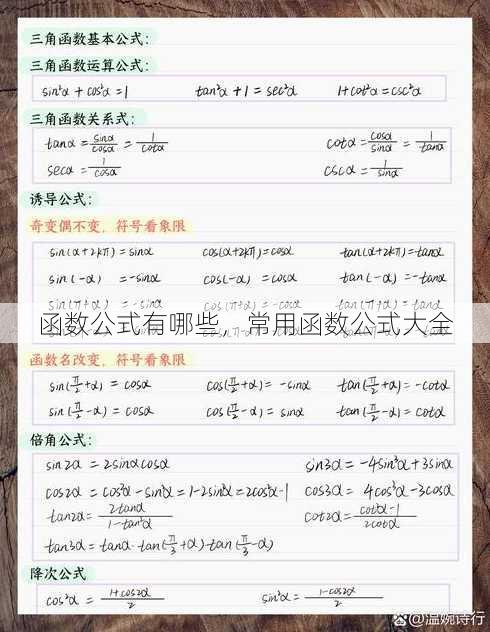 三角函数基本公式:
三角函数运算公式:
sin²α + cos²α = 1 tan²α + 1 = sec²α 1 + cot²α = csc²α
三角函数关系式:
tanα = sinα/cosα = 1/cotα cotα = cosα/sinα = 1/tanα
secα = 1/cosα cscα = 1/sinα
诱导公式:
奇变偶不变, 符号看象限
sin(α+2kπ) = sinα cos(α+2kπ) = cosα tan(α+2kπ) = tanα
sin(-α) = -sinα cos(-α) = cosα tan(-α) = -tanα
sin(π+α) = -sinα cos(π+α) = -cosα tan(π+α) = tanα
函数公式有哪些,常用函数公式大全
函数名改变, 符号看象限
sin(π/2+α) = cosα cos(π/2+α) = -sinα tan(π/2+α) = -cotα
sin(π/2-α) = cosα cos(π/2-α) = sinα tan(π/2-α) = cotα
倍角公式:
sin2α = 2sinαcosα sin3α = -4sin³α + 3sinα
cos2α = cos²α - sin²α = 1-2sin²α = 2cos²α-1 cos3α = 4cos³α - 3cosα
tan2α = 2tanα/1-tan²α cot2α = cot²α-1/2cotα
tan3α = tanα·tan(π/3+α)·tan(π/3-α)
降次公式
cos²α = 1+cos2α/2 sin²α = 1-cos2α/2
@温婉诗行